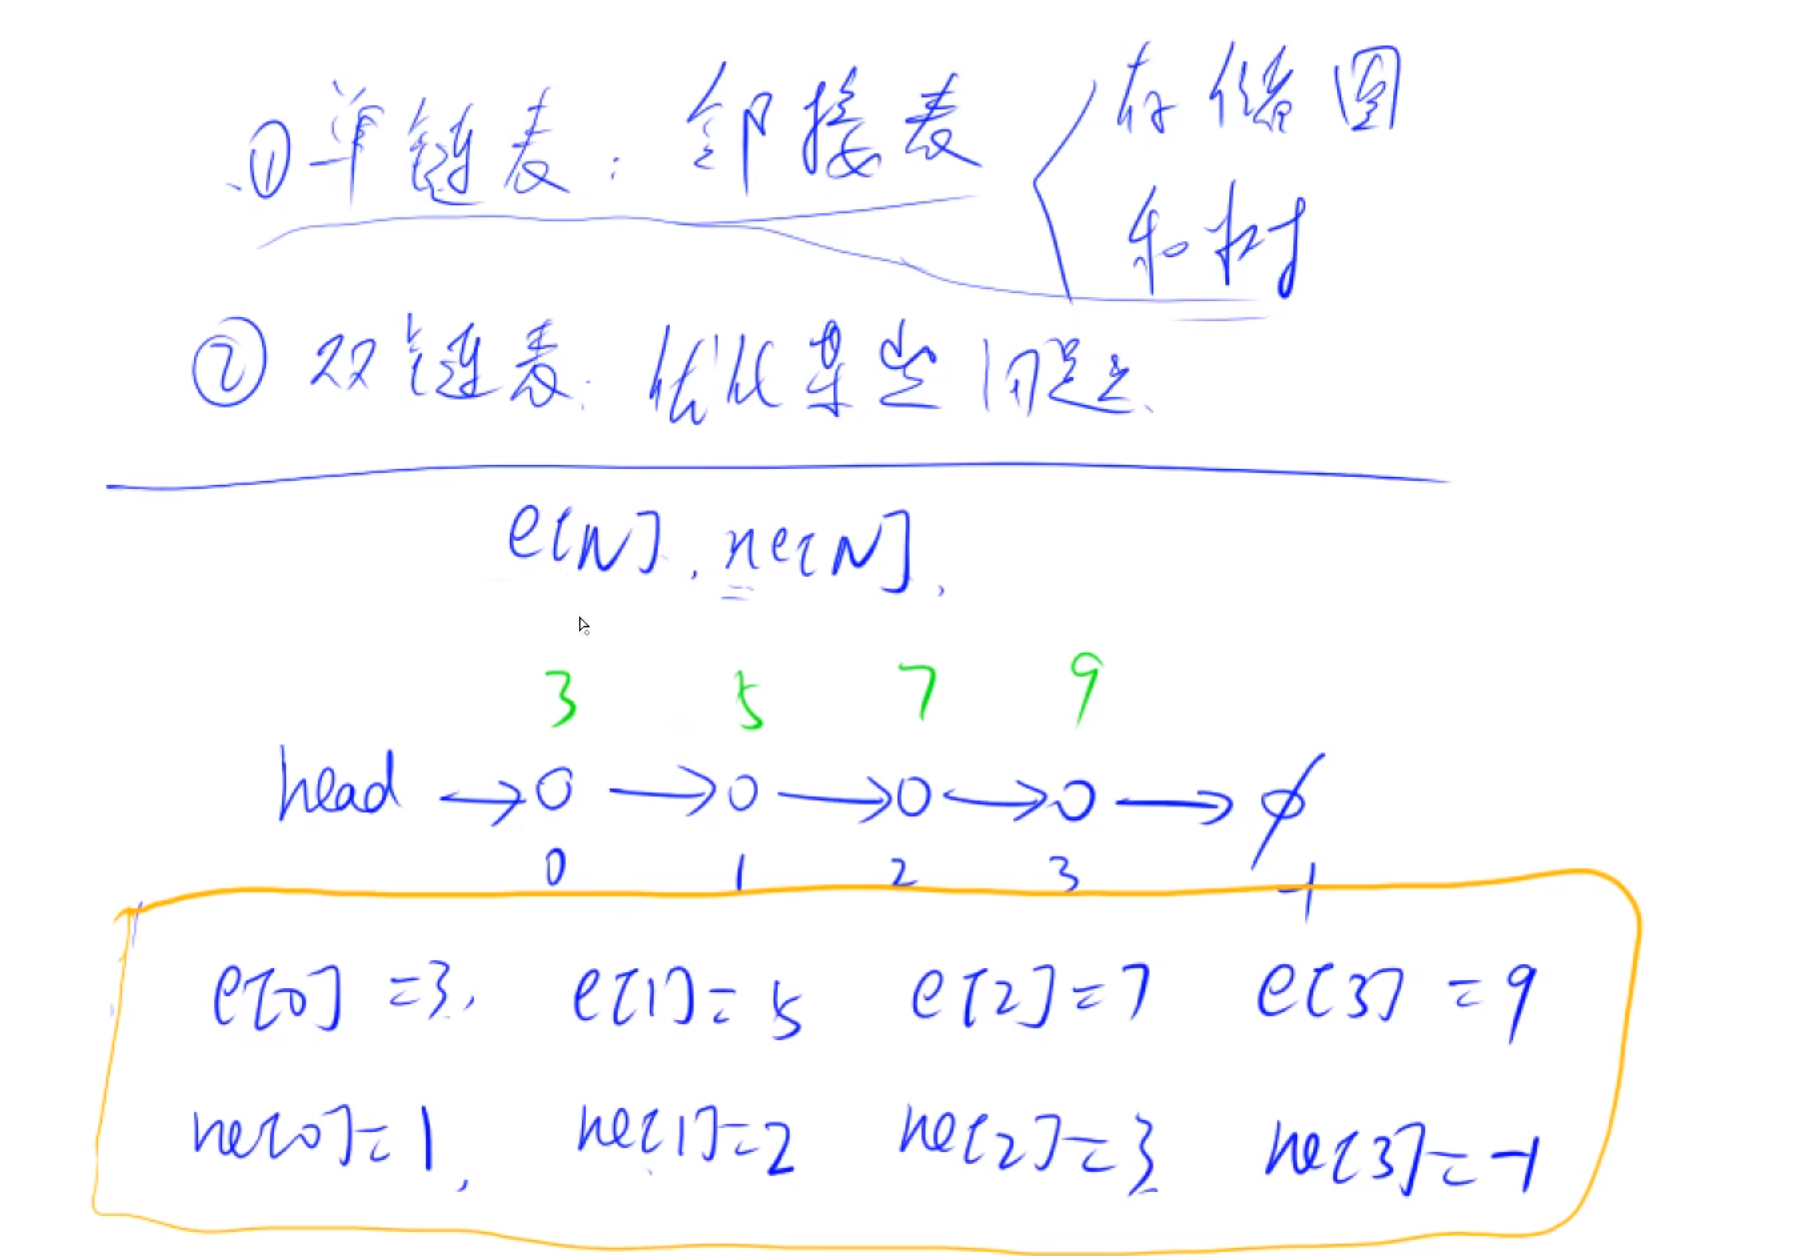 ①单链表：邻接表 存储图
和树
②双链表：优化某些问题
e[N], ne[N],
3 5 7 9
head →O →O →O →O → ∅
0 1 2 3 -1
e[0]=3, e[1]=5 e[2]=7 e[3]=9
ne[0]=1, ne[1]=2 ne[2]=3 ne[3]=-1